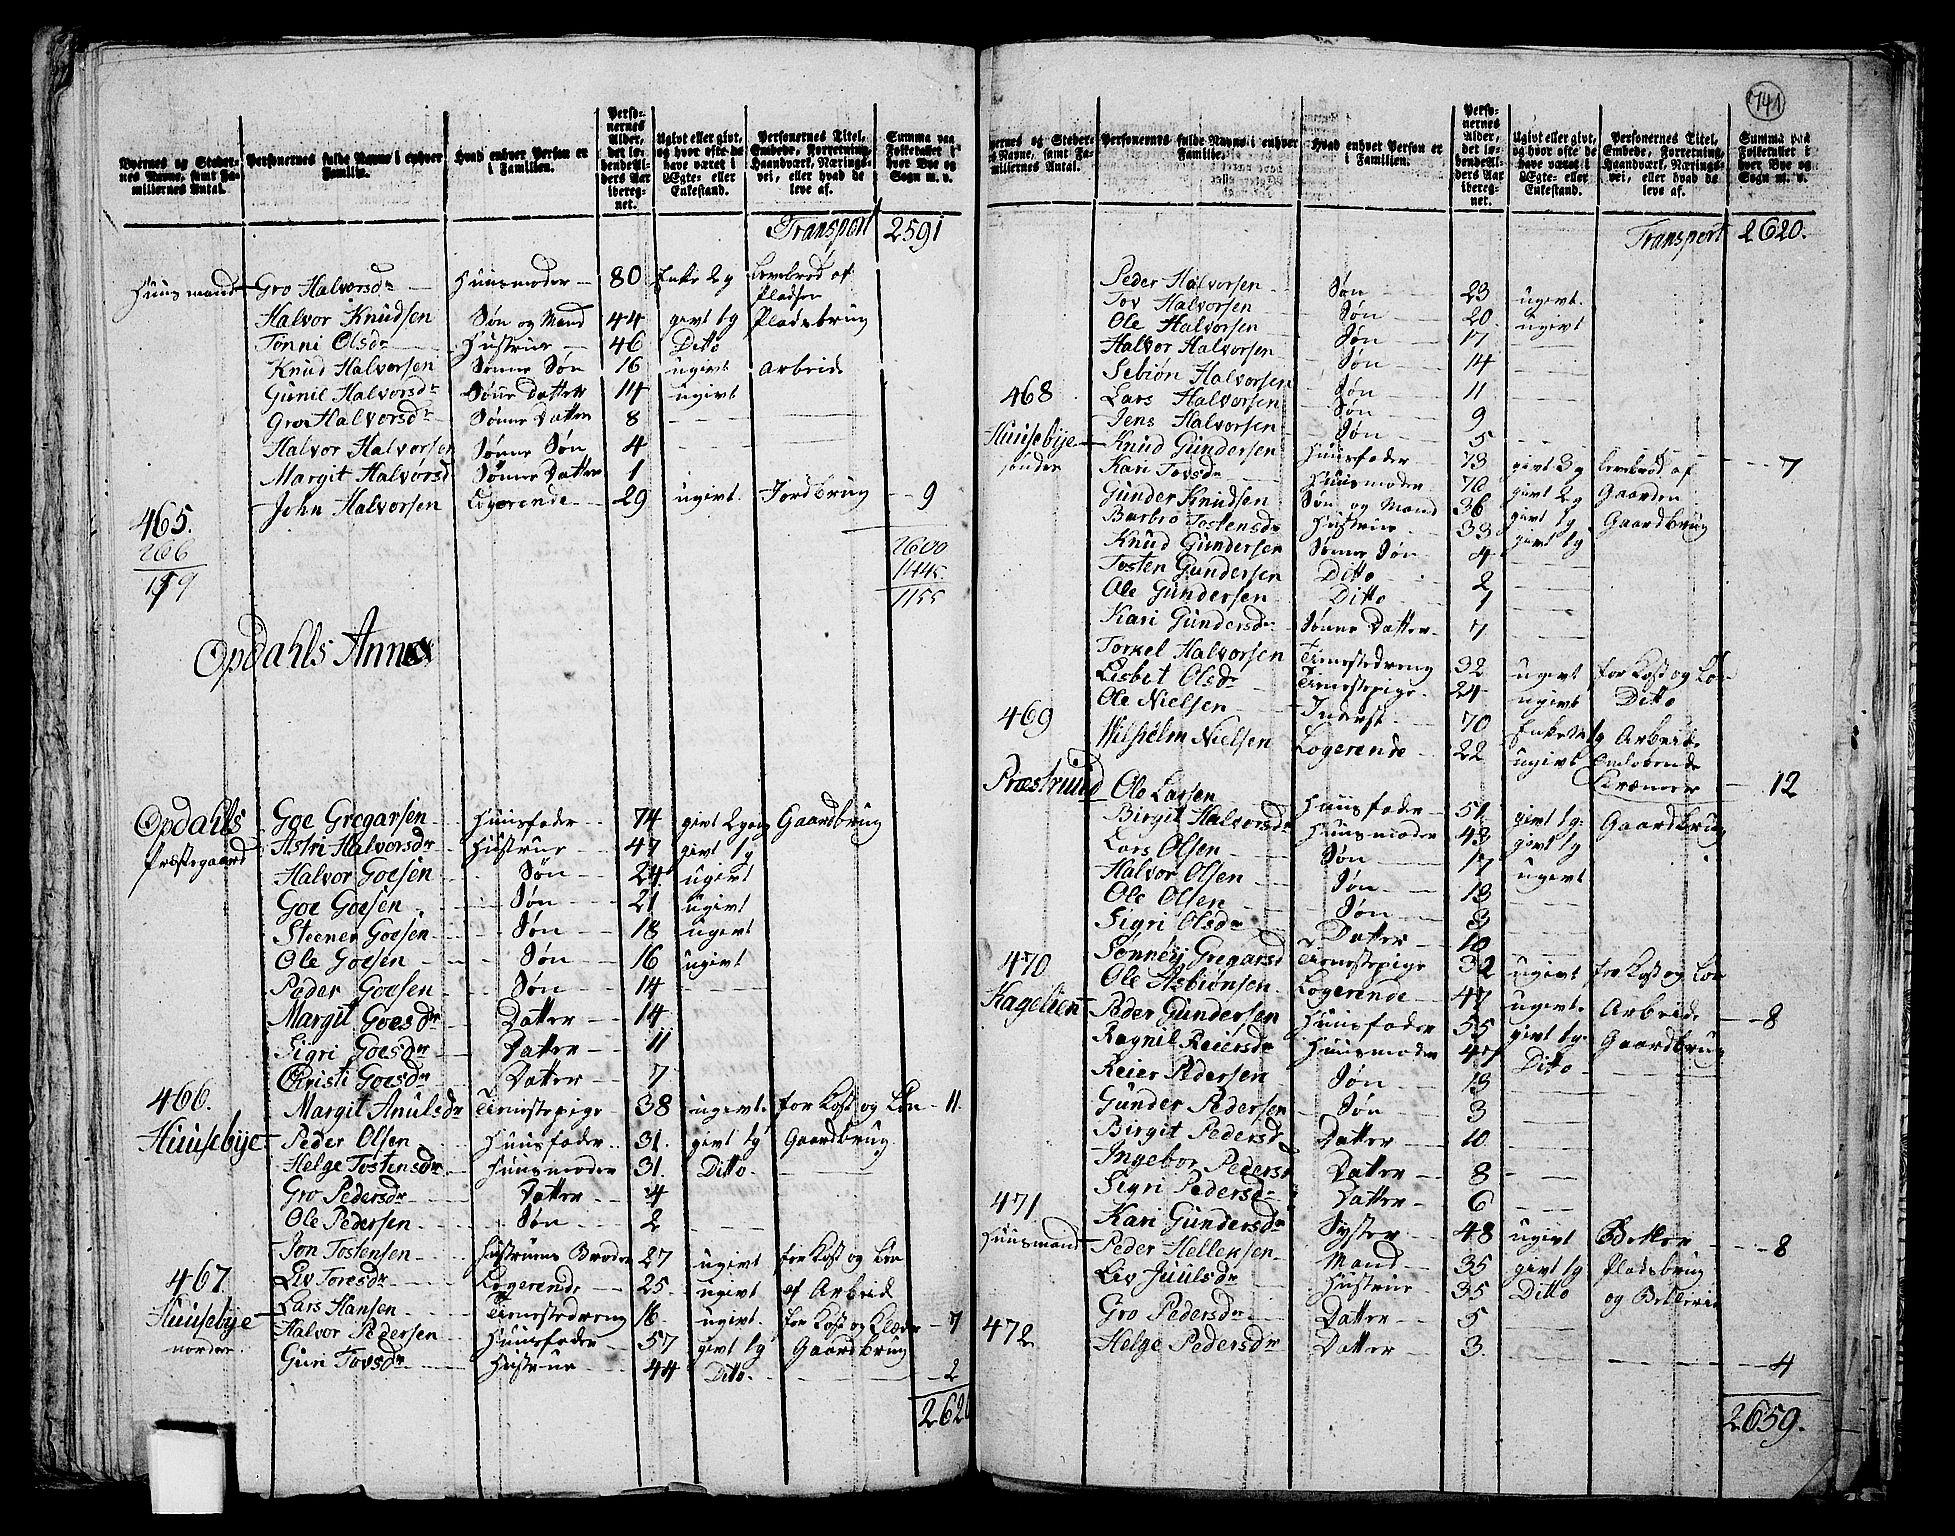 Byernes og Steder-
nes Navne, samt Fa-
miliernes Antal.
Personernes fulde Navne i enhver
Familie.
Hvad enhver Person er
i Familien.
Perso-
nernes
Alder,
det lø-
bende Al-
ders Aar
iberegnet.
Ugivt eller givt,
og hvor ofte de
have været i
Ægte- eller
Enkestand.
Personernes Titel,
Embede, Forretning,
Haandværk, Nærings-
vei, eller hvad de
leve af.
Summa paa
Folketallet i
hver Bye og
Sogn m. v.
Transport 2591
Huusmand Gro Halvorsdr Huusmoder 80 Enke 2g Levebrød af
Pladsen
Halvor Knudsen Søn og Mand 44 givt 1g Pladsbrug
Tønni Olsdr Hustrue 46 Ditto
Knud Halvorsen Sønne Søn 16 ugivt Arbeide
Gunil Halvorsdr Sønne Datter 14 ugivt
Gro Halvorsdr Sønne Datter 8
Halvor Halvorsen Sønne Søn 4
Margit Halvorsd Sønne Datter 1
John Halvorsen Logerende 29 ugivt Jordbrug 9
465.
266 2600
1445
199 1155
Opdahls Annex
Opdahls Goe Gregarsen Huusfader 74 givt 2gang Gaardbrug
Præstegaard Astri Halvorsdr Hustrue 47 givt 1g
Halvor Goesen Søn 24 ugivt
Goe Goesen Søn 21 ugivt
Steener Goesen Søn 18 ugivt
Ole Goesen Søn 16 ugivt
Peder Goesen Søn 14
Margit Goesdr Datter 14
Sigri Goesdr Datter 11
Christi Goesdr Datter 7
466. Margit Anulsdr Tienestepige 38 ugivt for Kost og Løn 11.
Huusebÿe Peder Olsen Huusfader 31. givt 1g Gaardbrug
Helge Tostensdr Huusmoder 31. Ditto
Gro Pedersdr Datter 4
Ole Pedersen Søn 2
Jon Tostensen Hustrues Broder 27 ugivt for Kost og Løn
467. Liv Toresdr Logerende 25 ugivt af Arbeide
Huusebÿe Lars Hansen Tienestedreng 16 ugivt for Kost og Klæder 7
nordre Halvor Pedersen Huusfader 57 givt 1g Gaardbrug
Gun Tovsdr Hustrue 44 Ditto 2
2620
741
Byernes og Steder-
nes Navne, samt Fa-
miliernes Antal.
Personernes fulde Navne i enhver
Familie.
Hvad enhver Person er
i Familien.
Perso-
nernes
Alder,
det lø-
bende Al-
ders Aar
ibereg-
net.
Ugivt eller givt,
og hvor ofte de
have været i
Ægte- eller
Enkestand.
Personernes Titel,
Embede, Forretning,
Haandværk, Nærings-
vei, eller hvad de
leve af.
Summa paa
Folketallet i
hver Bye og
Sogn m. v.
Transport 2620.
Peder Halvorsen Søn 23 ugivt
Tov Halvorsen Søn 20 ugivt
Ole Halvorsen Søn 17
Halvor Halvorsen Søn 14
Sebiøn Halvorsen Søn 11
468 Lars Halvorsen Søn 9
Jens Halvorsen Søn 5 7
Huusebÿe Knud Gundersen Huusfader 73 givt 3g Levebrød af
søndre Kari Tovsdr Huusmoder 70 givt 2g Gaarden
Gunder Knudsen Søn og Mand 36 givt 1g Gaardbrug
Barbro Tostensdr Hustrue 33 givt 1g
Knud Gundersen Sønne Søn 4
Tosten Gundersen Ditto 2
Ole Gundersen Ditto 1
Kari Gundersdr Sønne Datter 7
Torkel Halvorsen Tienestedreng 32 ugivt for Kost og Løn
Lisbet Olsdr Tienestepige 24 ugivt Ditto
469 Ole Nielsen Inderst 70 Arbeide
Wilhelm Nielsen Logerende 22 ugivt Omløbende
Kræmmer 12
Præstrund Ole Larsen Huusfader 51 givt 1g Gaardbrug
Birgit Halvorsdr Huusmoder 43 givt 1g
Lars Olsen Søn 17 ugivt
Halvor Olsen Søn 13
Ole Olsen Søn 3
Sigri Olsdr Datter 10
470 Sønnev Gregarsd Tienestepige 32 ugivt for Kost og Løn
Ole Asbiønsen Logerende 47 ugivt Arbeide 8
Kagelien Peder Gundersen Huusfader 55 givt 1g Gaardbrug
Ragnil Reiersdr Huusmoder 47 Ditto
Reier Pedersen Søn 13
Gunder Pedersen Søn 3
Birgit Pedersd Datter 10
Ingebor Pedersd Datter 8
Sigri Pedersdr Datter 6
471 Kari Gundersdr Syster 48 ugivt Betler 8
Huusmand Peder Helleksen Mand 35 givt 1g Pladsbrug
Liv Juulsdr Hustrue 35 Ditto og Betlerie
Gro Pedersdr Datter 5
472 Helge Pedersdr Datter 3 4
2659.